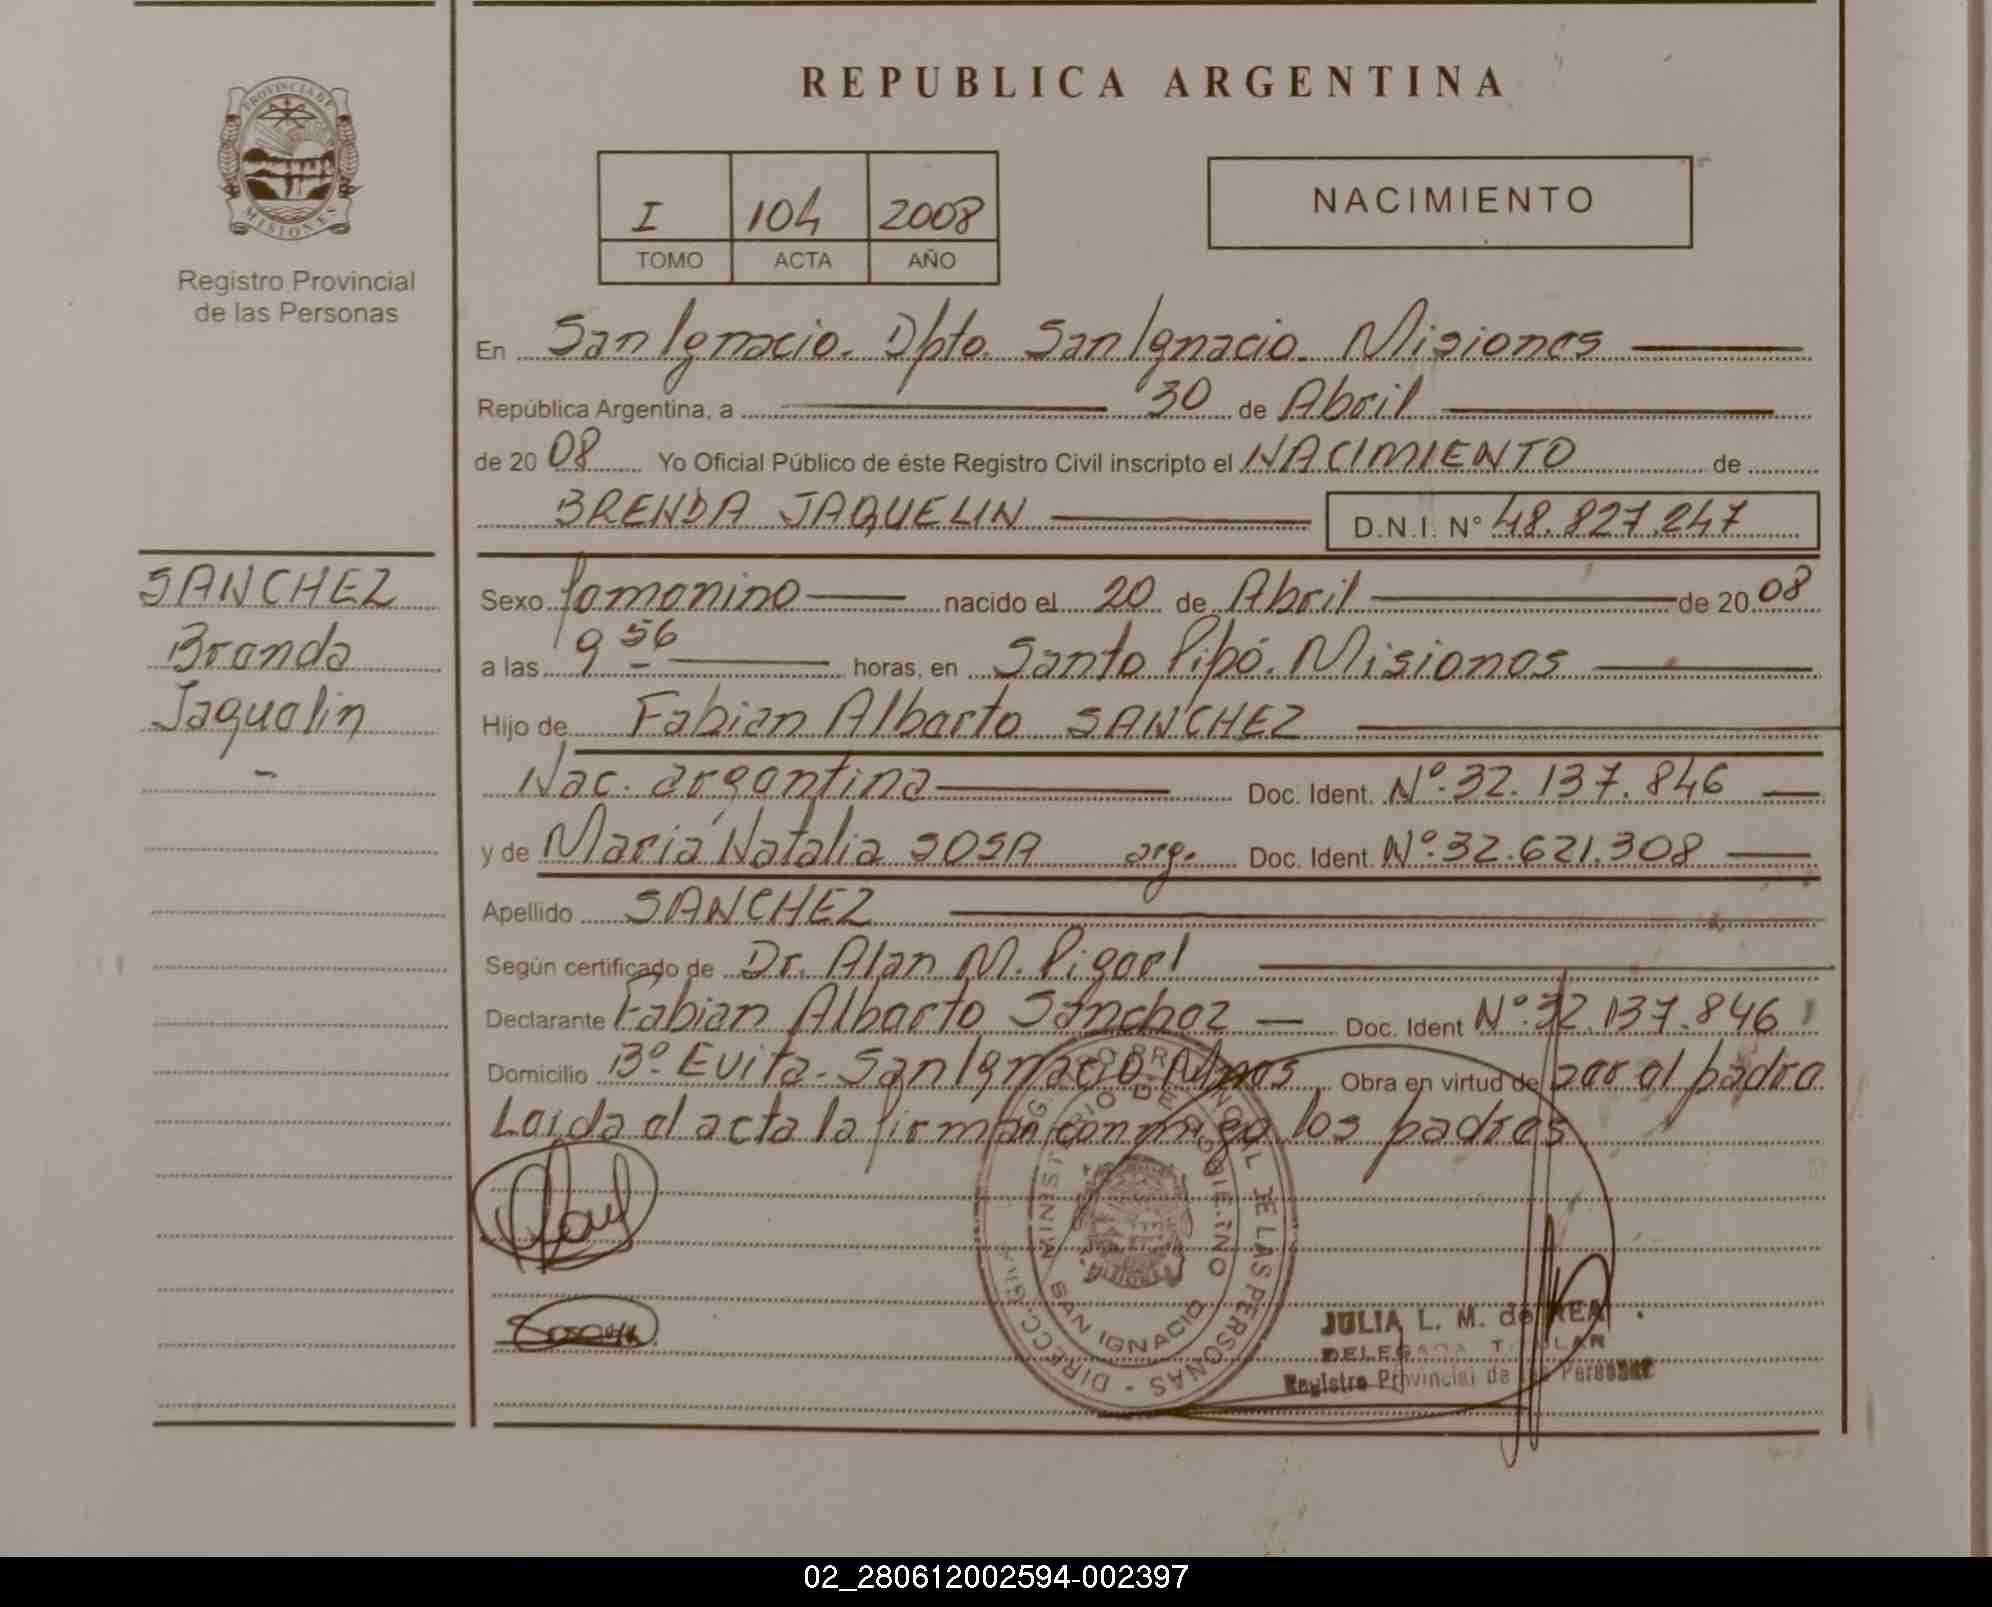 REPUBLICA ARGENTINA
PROVINCIA DE
MISIONES
Registro Provincial
de las Personas
I 104 2008
TOMO ACTA AÑO
NACIMIENTO
En San Ignacio. Dpto. San Ignacio. Misiones
República Argentina, a 30 de Abril
de 20 08 Yo Oficial Público de éste Registro Civil inscripto el NACIMIENTO de
BRENDA JAQUELIN D.N.I. N° 48.827.247
SANCHEZ
Brenda
Jaquelin
Sexo femenino nacido el 20 de Abril de 20 08
a las 9 56 horas, en Santo Pipó. Misiones
Hijo de Fabian Alberto SANCHEZ
Nac. argentina Doc. Ident. Nº.32.137.846
y de Maria Natalia SOSA arg. Doc. Ident. Nº.32.621.308
Apellido SANCHEZ
Según certificado de Dr. Alan M.
Declarante Fabian Alberto Sánchez Doc. Ident Nº.32.137.846
Domicilio Bº. Evita. San Ignacio Mnes Obra en virtud de ser el padre
Leida el acta la firman conmigo los padres
MINISTERIO DE GOBIERNO
SAN IGNACIO
DE LAS PERSONAS
JULIA L. M. de REA
DELEGADA TITULAR
Registro Provincial de las Personas
02_280612002594-002397